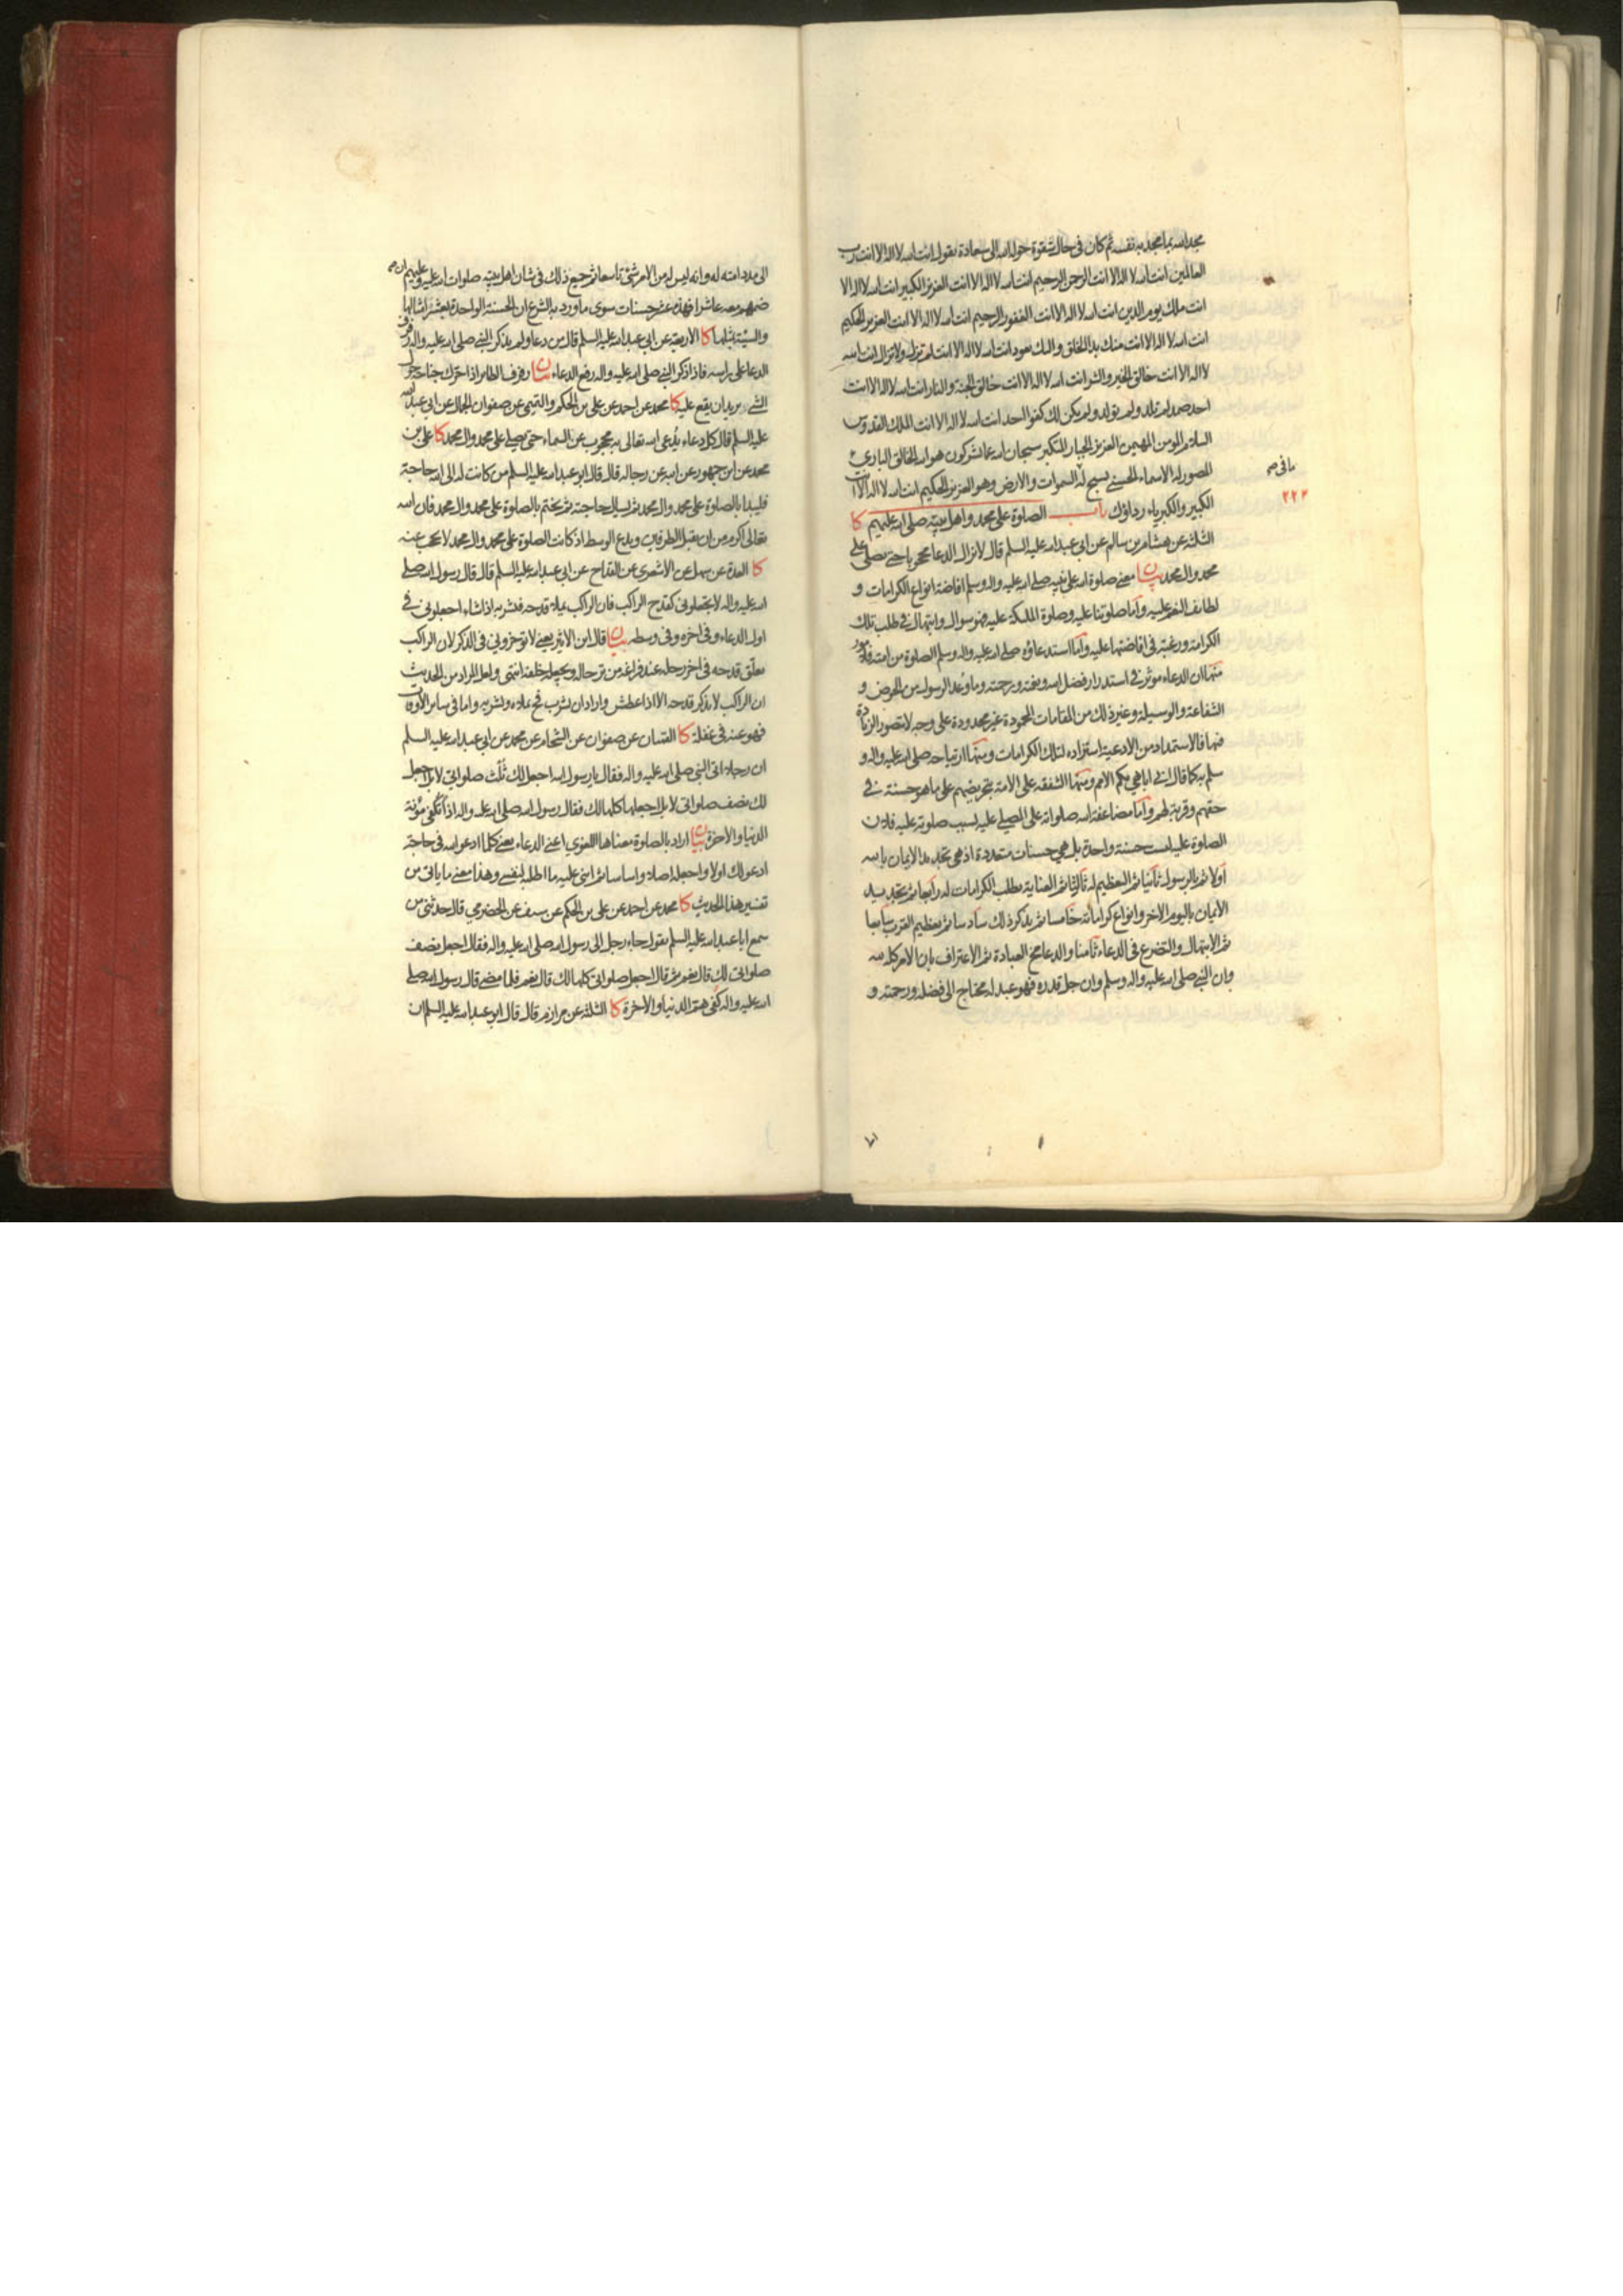 مجد الله بما مجد به نفسه ثم كان في حال شقوة حوله الله الى سعادة يقول انت الله لا اله الا انت رب
العالمين انت الله لا اله الا انت الرحمن الرحيم انت الله لا اله الا انت العزيز الكبير انت الله لا اله الا
انت ملك يوم الدين انت الله لا اله الا انت الغفور الرحيم انت الله لا اله الا انت العزيز الحكيم
انت الله لا اله الا انت منك بدأ الخلق واليك يعود انت الله لا اله الا انت لم تزل ولا تزال انت الله
لا اله الا انت خالق الخير والشر انت الله لا اله الا انت خالق الجنة والنار انت الله لا اله الا انت
احد صمد لم تلد ولم تولد ولم يكن لك كفوا احد انت الله لا اله الا انت الملك القدوس
السلام المومن المهيمن العزيز الجبار المتكبر سبحان الله عما يشركون هو الله الخالق البارئ
المصور له الاسماء الحسنى يسبح له السموات والارض وهو العزيز الحكيم انت الله لا اله الا انت
ما في صح
٢٢٢
الكبير والكبرياء رداؤك باب الصلوة على محمد واهل بيته صلى الله عليهم كا
الثلثة عن هشام بن سالم عن ابي عبد الله عليه السلم قال لا يزال الدعا محجوبا حتى يصلى على
محمد وال محمد بيان معنى صلوة الله على نبيه صلى الله عليه واله وسلم افاضة انواع الكرامات و
لطايف النعم عليه واما صلوتنا عليه وصلوة الملئكة عليه فهو سوال وابتهال في طلب تلك
الكرامة ورغبة في افاضتها عليه واما استدعاؤه صلى الله عليه واله وسلم الصلوة من امته فلامور
منها ان الدعاء موثر في استدرار فضل الله ونعمته ورحمته وما وعد الرسول من الحوض و
الشفاعة والوسيلة وغير ذلك من المقامات المحمودة غير محدودة على وجه لا يتصور الزيادة
فيها فالاستمداد من الادعية استزاده لتلك الكرامات ومنها ارتياحه صلى الله عليه واله و
سلم به كما قال اني اباهي بكم الامم ومنها الشفقه على الامة بتحريضهم على ما هو حسنة في
حقهم وقربة لهم واما مضاعفة الله صلواته على المصلي عليه بسبب صلوته عليه فلان
الصلوة عليه ليست حسنة واحدة بل هي حسنات متعددة اذ هي تجديد الايمان بالله
اولا ثم بالرسول ثانيا ثم التعظيم له ثالثا ثم العناية بطلب الكرامات له رابعا ثم تجديد
الايمان باليوم الاخر وانواع كراماته خامسا ثم بذكر ذلك سادسا ثم تعظيم القرب سابعا
ثم الابتهال والتضرع في الدعاء ثامنا والدعا مخ العبادة ثم الاعتراف بان الامر كله لله
وان النبي صلى الله عليه واله وسلم وان جل قدره فهو عبد له محتاج الى فضله ورحمته و
الى مدد امته له وانه ليس له من الامر شئ تاسعا ثم جميع ذلك في شان اهل بيته صلوات الله عليه وعليهم ان صح
ضمهم معه عاشرا فهذه عشر حسنات سوى ما ورد به الشرع ان الحسنة الواحدة بعشر امثالها
والسيئة بمثلها كا الاربعة عن ابي عبد الله عليه السلم قال من دعا ولم يذكر النبي صلى الله عليه واله رفرف
الدعا على راسه فاذا ذكر النبي صلى الله عليه واله رفع الدعاء بيان رفرف الطاير اذا حرك جناحه حول
الشئ يريد ان يقع عليه كا محمد عن احمد عن علي بن الحكم والتيمي عن صفوان الجمال عن ابي عبد الله
عليه السلم قال كل دعاء يدعى الله تعالى به محجوب عن السماء حتى يصلى على محمد وال محمد كا علي بن
محمد عن ابن جمهور عن ابيه عن رجاله قال قال ابو عبد الله عليه السلم من كانت له الى الله حاجة
فليبدا بالصلوة على محمد وال محمد ثم يسال حاجته ثم يختم بالصلوة على محمد وال محمد فان الله
تعالى اكرم من ان يقبل الطرفين ويدع الوسط اذ كانت الصلوة على محمد وال محمد لا يحجب عنه
كا العدة عن سهل عن الاشعري عن القداح عن ابي عبد الله عليه السلم قال قال رسول الله صلى
الله عليه واله لا تجعلوني كقدح الراكب فان الراكب يملا قدحه فيشربه اذا شاء اجعلوني في
اول الدعاء وفي اخره وفي وسطه بيان قال ابن الاثير يعني لا توخروني في الذكر لان الراكب
يعلق قدحه في اخر رحله عند فراغه من ترحاله ويجعله خلفه انتهى ولعل المراد من الحديث
ان الراكب لا يذكر قدحه الا اذا عطش واراد ان يشرب فح يملاه ويشربه واما في ساير الاوقات
فهو عنه في غفلة كا القميان عن صفوان عن الشحام عن محمد عن ابي عبد الله عليه السلم
ان رجلا اتى النبي صلى الله عليه واله فقال يا رسول الله اجعل لك ثلث صلواتي لا بل اجعل
لك نصف صلواتي لا بل اجعلها كلها لك فقال رسول الله صلى الله عليه واله اذا تكفى مؤنة
الدنيا والاخرة بيان اراد بالصلوة معناها اللغوي اعني الدعاء يعني كلما ادعو الله في حاجة
ادعو لك اولا واجعله اصلا واساسا ثم ابني عليه ما اطلبه لنفسي وهذا معنى ما ياتي من
تفسير هذا الحديث كا محمد عن احمد عن علي بن الحكم عن سيف عن الحضرمي قال حدثني من
سمع ابا عبد الله عليه السلم يقول جاء رجل الى رسول الله صلى الله عليه واله فقال اجعل نصف
صلواتي لك قال نعم ثم قال اجعل صلواتي كلها لك قال نعم فلما مضى قال رسول الله صلى
الله عليه واله كفي هم الدنيا والاخرة كا الثلثة عن مرازم قال قال ابو عبد الله عليه السلم ان